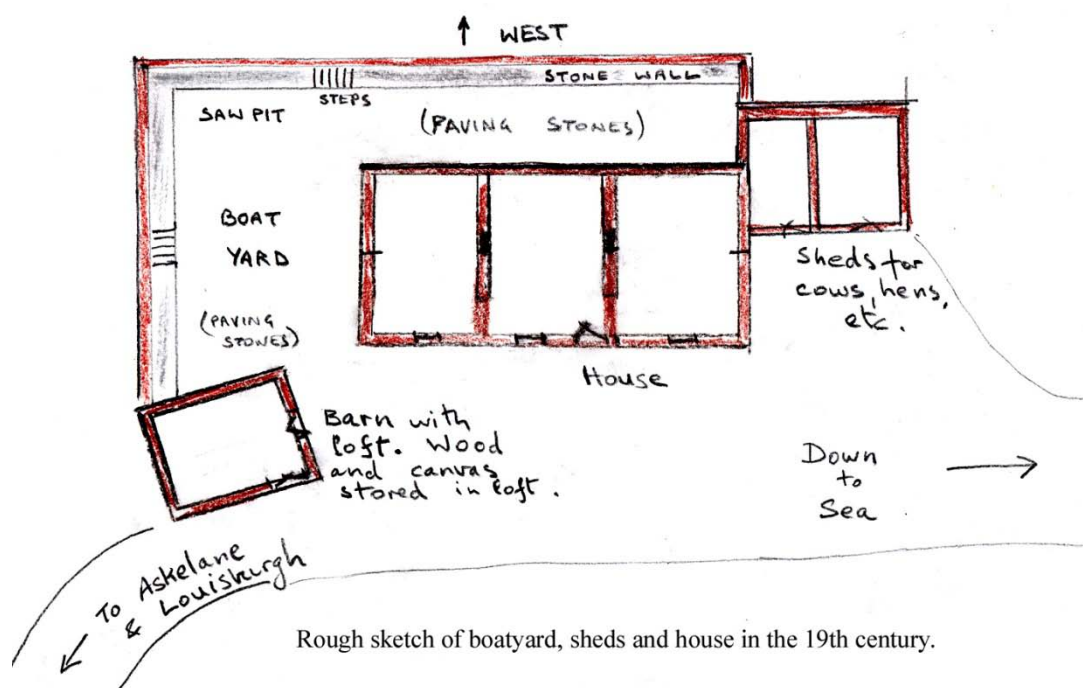 WEST
STONE WALL
STEPS
SAW PIT
(PAVING STONES)
BOAT
YARD
(PAVING
STONES)
Sheds for
cows, hens,
etc.
House
Barn with
loft. Wood
and canvas
stored in loft.
Down
to
Sea
To Askelane
& Louisburgh
Rough sketch of boatyard, sheds and house in the 19th century.